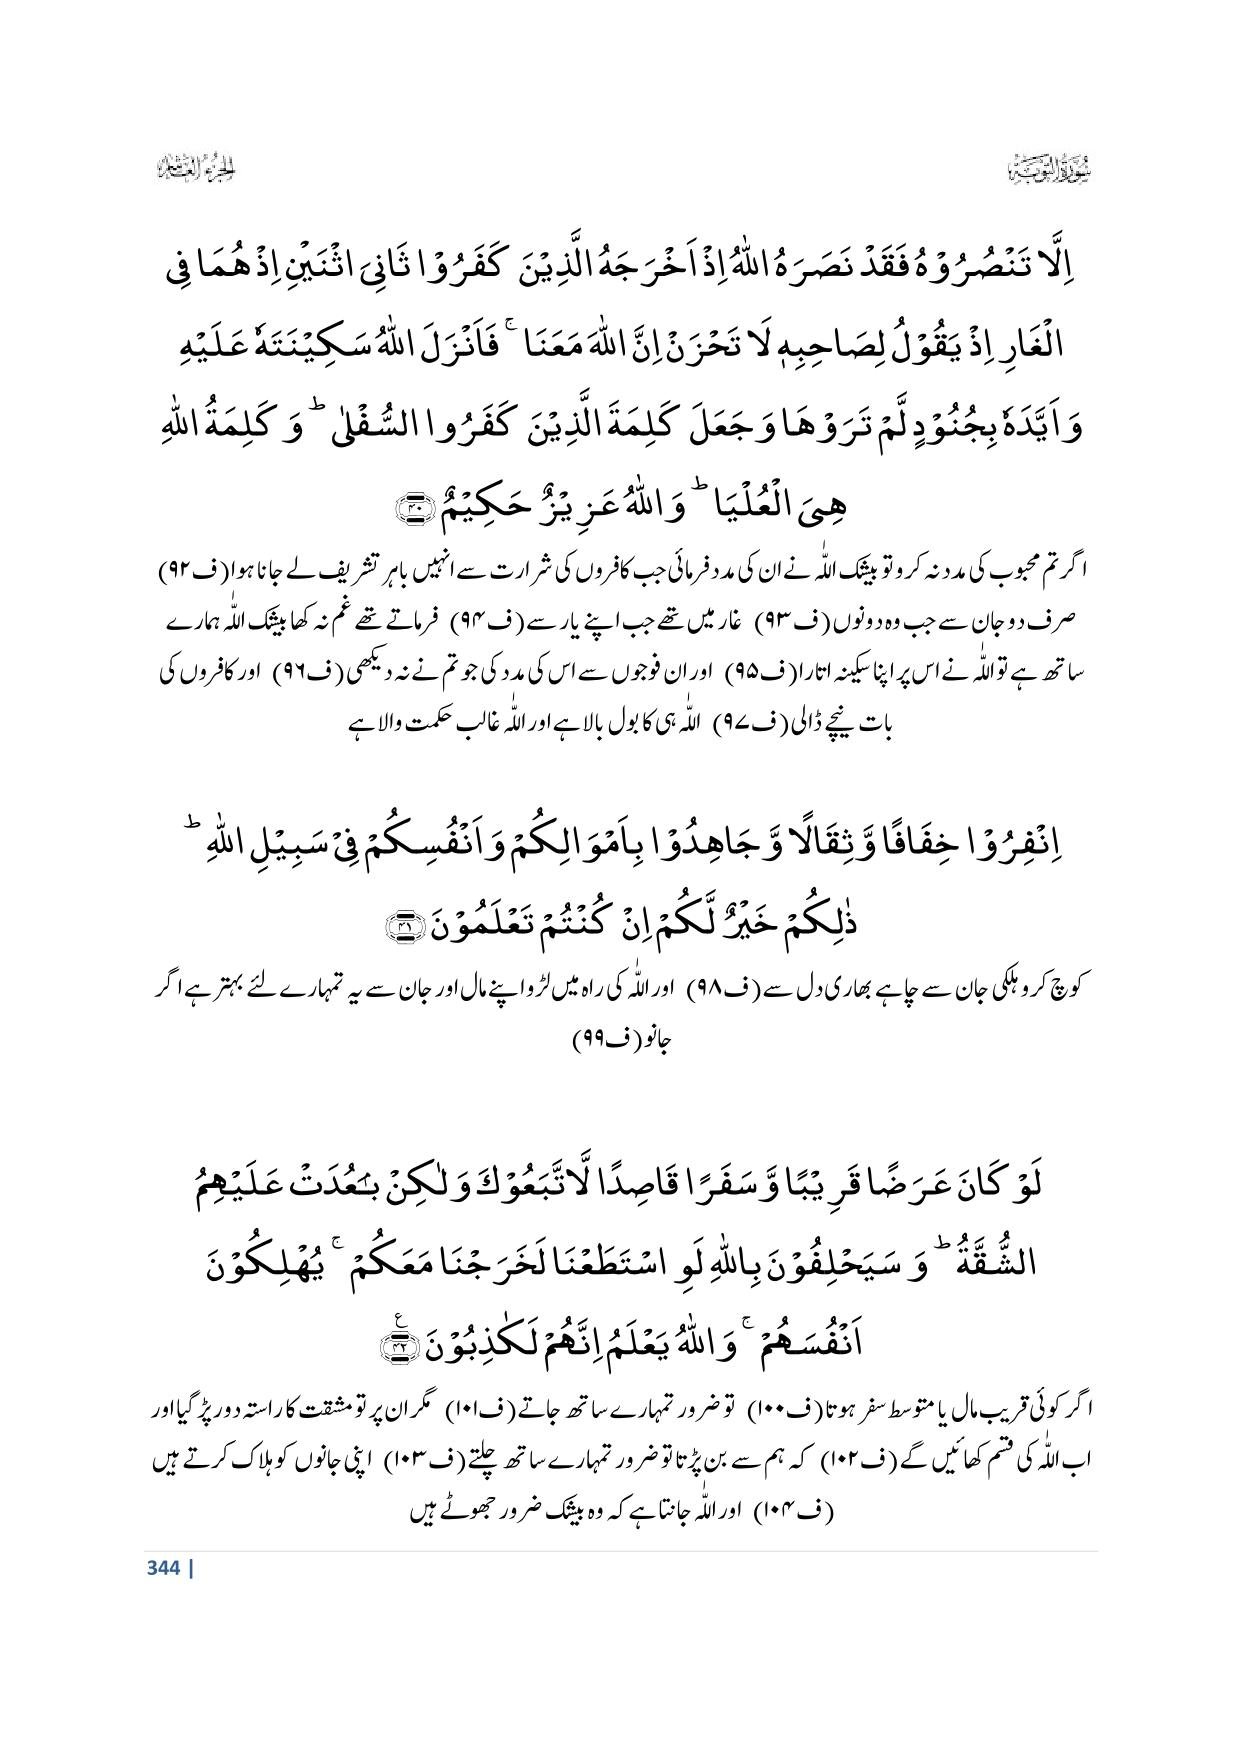 سُوۡرَۃُ التَّوۡبَۃِ
الجزء العاشر
اِلَّا تَنۡصُرُوۡہُ فَقَدۡ نَصَرَہُ اللّٰہُ اِذۡ اَخۡرَجَہُ الَّذِیۡنَ کَفَرُوۡا ثَانِیَ اثۡنَیۡنِ اِذۡ ہُمَا فِی
الۡغَارِ اِذۡ یَقُوۡلُ لِصَاحِبِہٖ لَا تَحۡزَنۡ اِنَّ اللّٰہَ مَعَنَا ۚ فَاَنۡزَلَ اللّٰہُ سَکِیۡنَتَہٗ عَلَیۡہِ
وَ اَیَّدَہٗ بِجُنُوۡدٍ لَّمۡ تَرَوۡہَا وَ جَعَلَ کَلِمَۃَ الَّذِیۡنَ کَفَرُوا السُّفۡلٰی ؕ وَ کَلِمَۃُ اللّٰہِ
ہِیَ الۡعُلۡیَا ؕ وَ اللّٰہُ عَزِیۡزٌ حَکِیۡمٌ ﴿۴۰﴾
اگر تم محبوب کی مدد نہ کرو تو بیشک اللّٰہ نے ان کی مدد فرمائی جب کافروں کی شرارت سے انہیں باہر تشریف لے جانا ہوا (ف۹۲)
صرف دو جان سے جب وہ دونوں (ف۹۳) غار میں تھے جب اپنے یار سے (ف۹۴) فرماتے تھے غم نہ کھا بیشک اللّٰہ ہمارے
ساتھ ہے تو اللّٰہ نے اس پر اپنا سکینہ اتارا (ف۹۵) اور ان فوجوں سے اس کی مدد کی جو تم نے نہ دیکھی (ف۹۶) اور کافروں کی
بات نیچے ڈالی (ف۹۷) اللّٰہ ہی کا بول بالا ہے اور اللّٰہ غالب حکمت والا ہے
اِنۡفِرُوۡا خِفَافًا وَّ ثِقَالًا وَّ جَاہِدُوۡا بِاَمۡوَالِکُمۡ وَ اَنۡفُسِکُمۡ فِیۡ سَبِیۡلِ اللّٰہِ ؕ
ذٰلِکُمۡ خَیۡرٌ لَّکُمۡ اِنۡ کُنۡتُمۡ تَعۡلَمُوۡنَ ﴿۴۱﴾
کوچ کرو ہلکی جان سے چاہے بھاری دل سے (ف۹۸) اور اللّٰہ کی راہ میں لڑو اپنے مال اور جان سے یہ تمہارے لئے بہتر ہے اگر
جانو (ف۹۹)
لَوۡ کَانَ عَرَضًا قَرِیۡبًا وَّ سَفَرًا قَاصِدًا لَّاتَّبَعُوۡکَ وَ لٰکِنۡۢ بَعُدَتۡ عَلَیۡہِمُ
الشُّقَّۃُ ؕ وَ سَیَحۡلِفُوۡنَ بِاللّٰہِ لَوِ اسۡتَطَعۡنَا لَخَرَجۡنَا مَعَکُمۡ ۚ یُہۡلِکُوۡنَ
اَنۡفُسَہُمۡ ۚ وَ اللّٰہُ یَعۡلَمُ اِنَّہُمۡ لَکٰذِبُوۡنَ ﴿۴۲﴾ ع
اگر کوئی قریب مال یا متوسط سفر ہوتا (ف۱۰۰) تو ضرور تمہارے ساتھ جاتے (ف۱۰۱) مگر ان پر تو مشقت کا راستہ دور پڑ گیا اور
اب اللّٰہ کی قسم کھائیں گے (ف۱۰۲) کہ ہم سے بن پڑتا تو ضرور تمہارے ساتھ چلتے (ف۱۰۳) اپنی جانوں کو ہلاک کرتے ہیں
(ف۱۰۴) اور اللّٰہ جانتا ہے کہ وہ بیشک ضرور جھوٹے ہیں
344 |